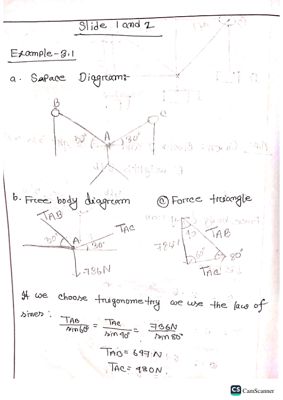 Slide 1 and 2
Example-3.1
a. Sapace Diagram:
B
C
A
50°
30°
b. Free body diagram
© Force triangle
TAB
TAC
50°
A
30°
736N
TAB
60°
80°
TAC
If we choose trigonometry we use the law of
sines: TAB/sin60° = TAC/sin40° = 736N/sin80°
TAB = 647 N
TAC = 480N.
CS CamScanner